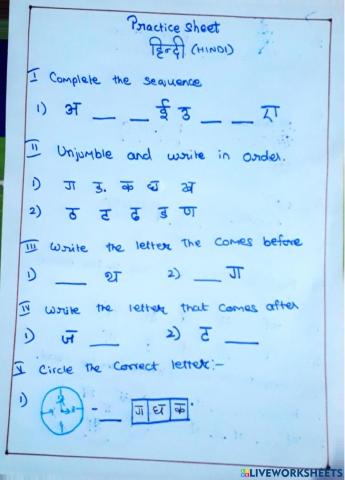 Practice Sheet
हिन्दी (HINDI)
I Complete the sequence
1) अ __ __ ई उ __ __
II Unjumble and write in order.
1) ग ङ क घ ख
2) ठ ट ढ ड ण
III Write the letter The comes before
1) __ थ 2) __ ग
IV Write the letter that comes after
1) ज __ 2) ट __
V Circle the Correct letter:-
1) - __ ग घ क
LIVEWORKSHEETS